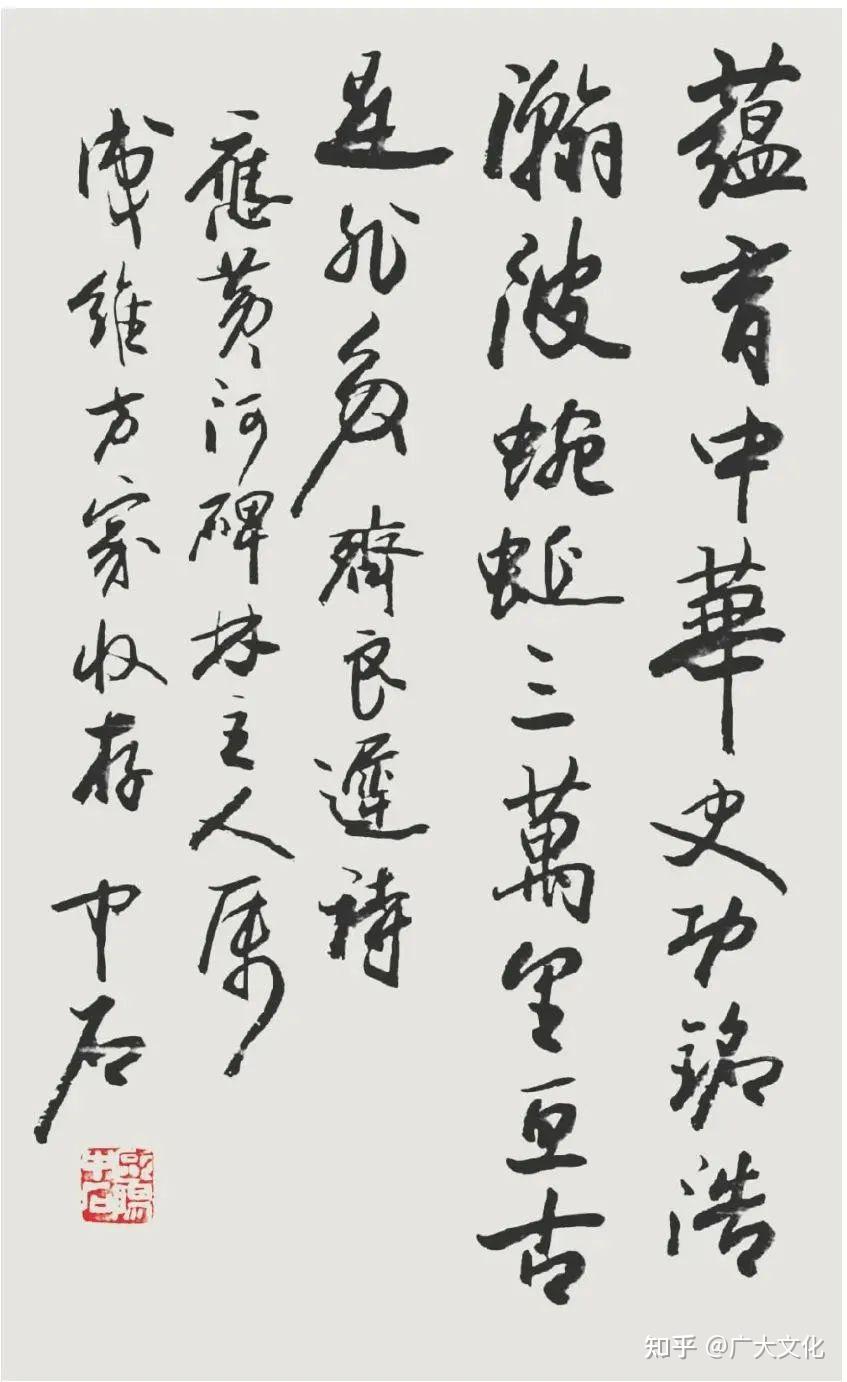 蕴育中華史功銘浩
瀚波蜿蜒三萬里亘古
是非多齊良遲詩
應黄河碑林主人属
維方家收存 中石
知乎 @广大文化